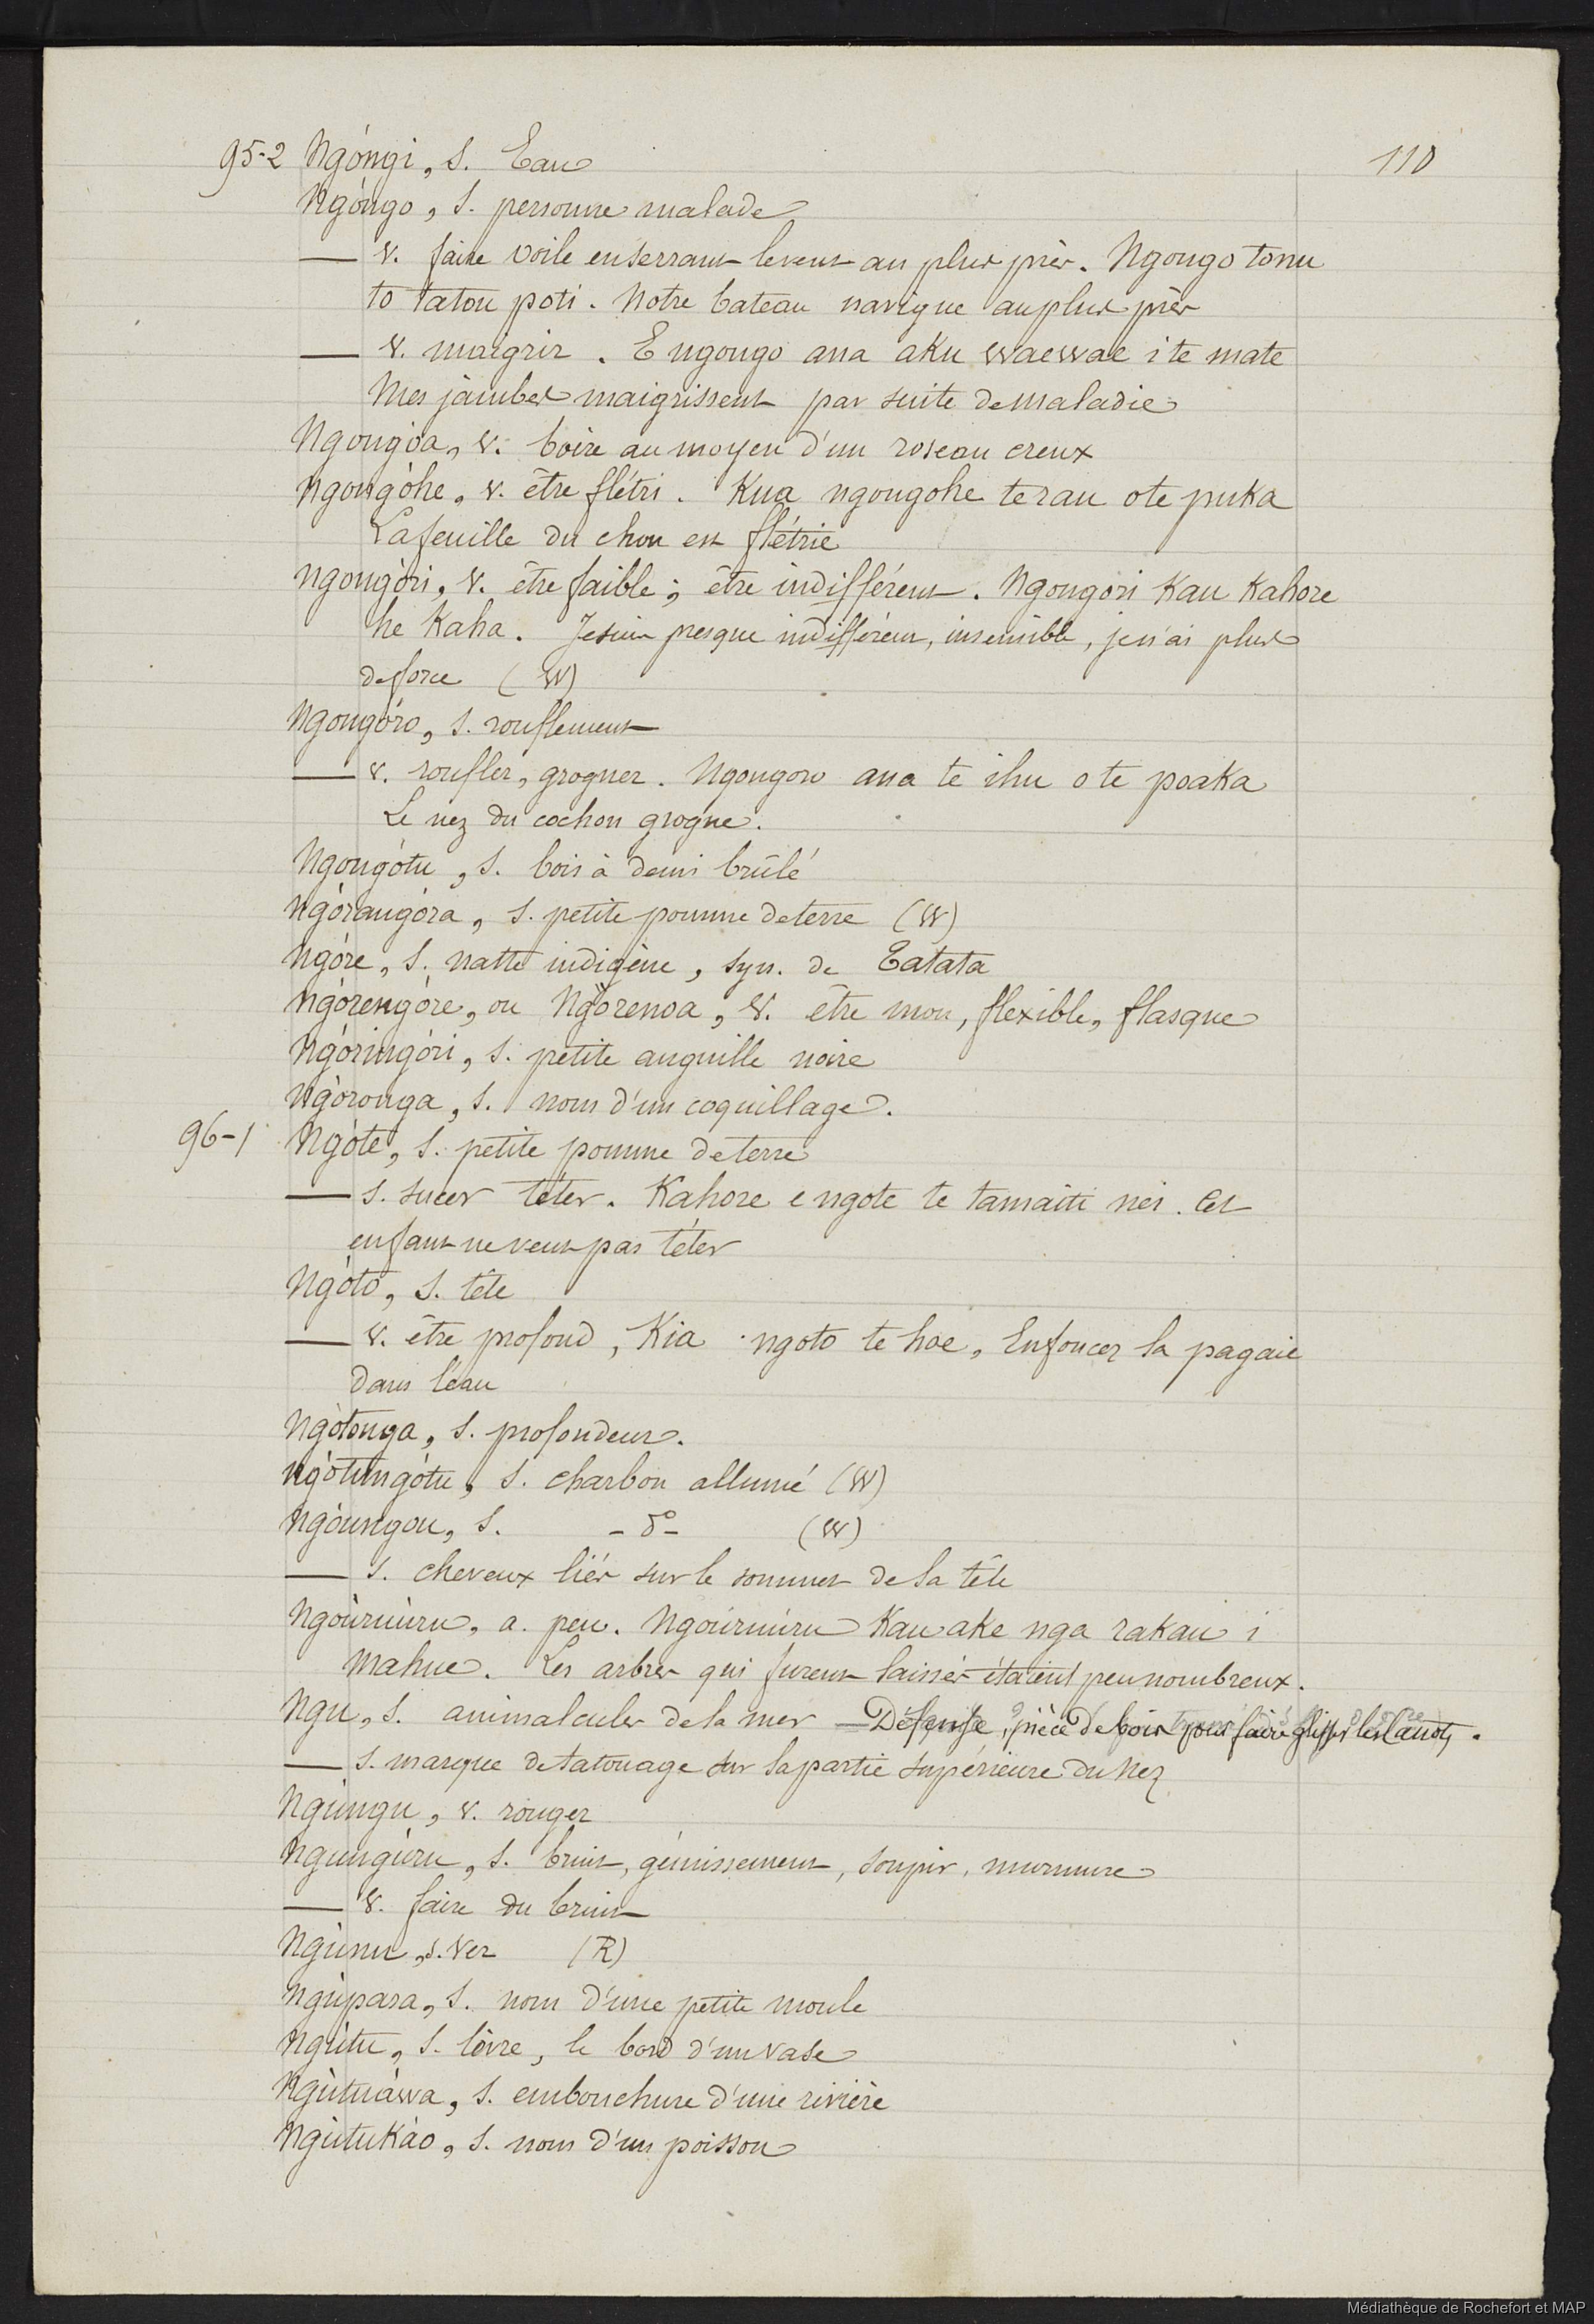 110
95-2 Ngóngi, s. Eau
Ngóngo, s. personne malade
— v. faire voile en serrant le vent au plus près. Ngongo tonu
to tatou poti. Notre bateau navigue au plus près
— v. maigrir. E ngongo ana aku waewae i te mate
Mes jambes maigrissent par suite de maladie
Ngongóa, v. boire au moyen d'un roseau creux
Ngongóhe, v. être flétri. Kua ngongohe te rau o te puka
La feuille du chou est flétrie
Ngongóri, v. être faible; être indifférent. Ngongori kau kahore
he kaha. Je suis presque indifférent, insensible, je n'ai plus
de force (W)
Ngongóro, s. ronflement
— v. ronfler, grogner. Ngongoro ana te ihu o te poaka
Le nez du cochon grogne.
Ngongótu, s. bois à demi brûlé
Ngórangóra, s. petite pomme de terre (W)
Ngóre, s. natte indigène, syn. de Tatata
Ngórengóre, ou Ngórenoa, v. être mou, flexible, flasque
Ngóringóri, s. petite anguille noire
Ngóronga, s. nom d'un coquillage.
96-1 Ngóte, s. petite pomme de terre
— s. sucer téter. Kahore e ngote te tamaiti nei. Cet
enfant ne veut pas téter
Ngóto, s. tête
— v. être profond, Kia ngoto te hoe, Enfoncez la pagaie
dans l'eau
Ngótonga, s. profondeur.
Ngótungótu, s. charbon allumé (W)
Ngóungou, s. - do - (W)
— s. cheveux liés sur le sommet de la tête
Ngoùruùru, a. peu. Ngoúruúru kau ake nga rakau i
mahue. Les arbres qui furent laissés étaient peu nombreux.
Ngu, s. animalcules de la mer — Défense, pièce de bois pour faire glisser les canots.
— s. marque de tatouage sur la partie supérieure du nez
Ngúngu, v. ronger
Ngungúru, s. bruit, gémissement, soupir, murmure
— v. faire du bruit
Ngúnu, s. ver (R)
Ngúpara, s. nom d'une petite moule
Ngútu, s. lèvre, le bord d'un vase
Ngùtuáwa, s. embouchure d'une rivière
Ngútukáo, s. nom d'un poisson
Médiathèque de Rochefort et MAP